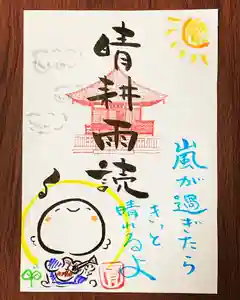 晴耕雨読
嵐が過ぎたら
きっと
晴れるよ